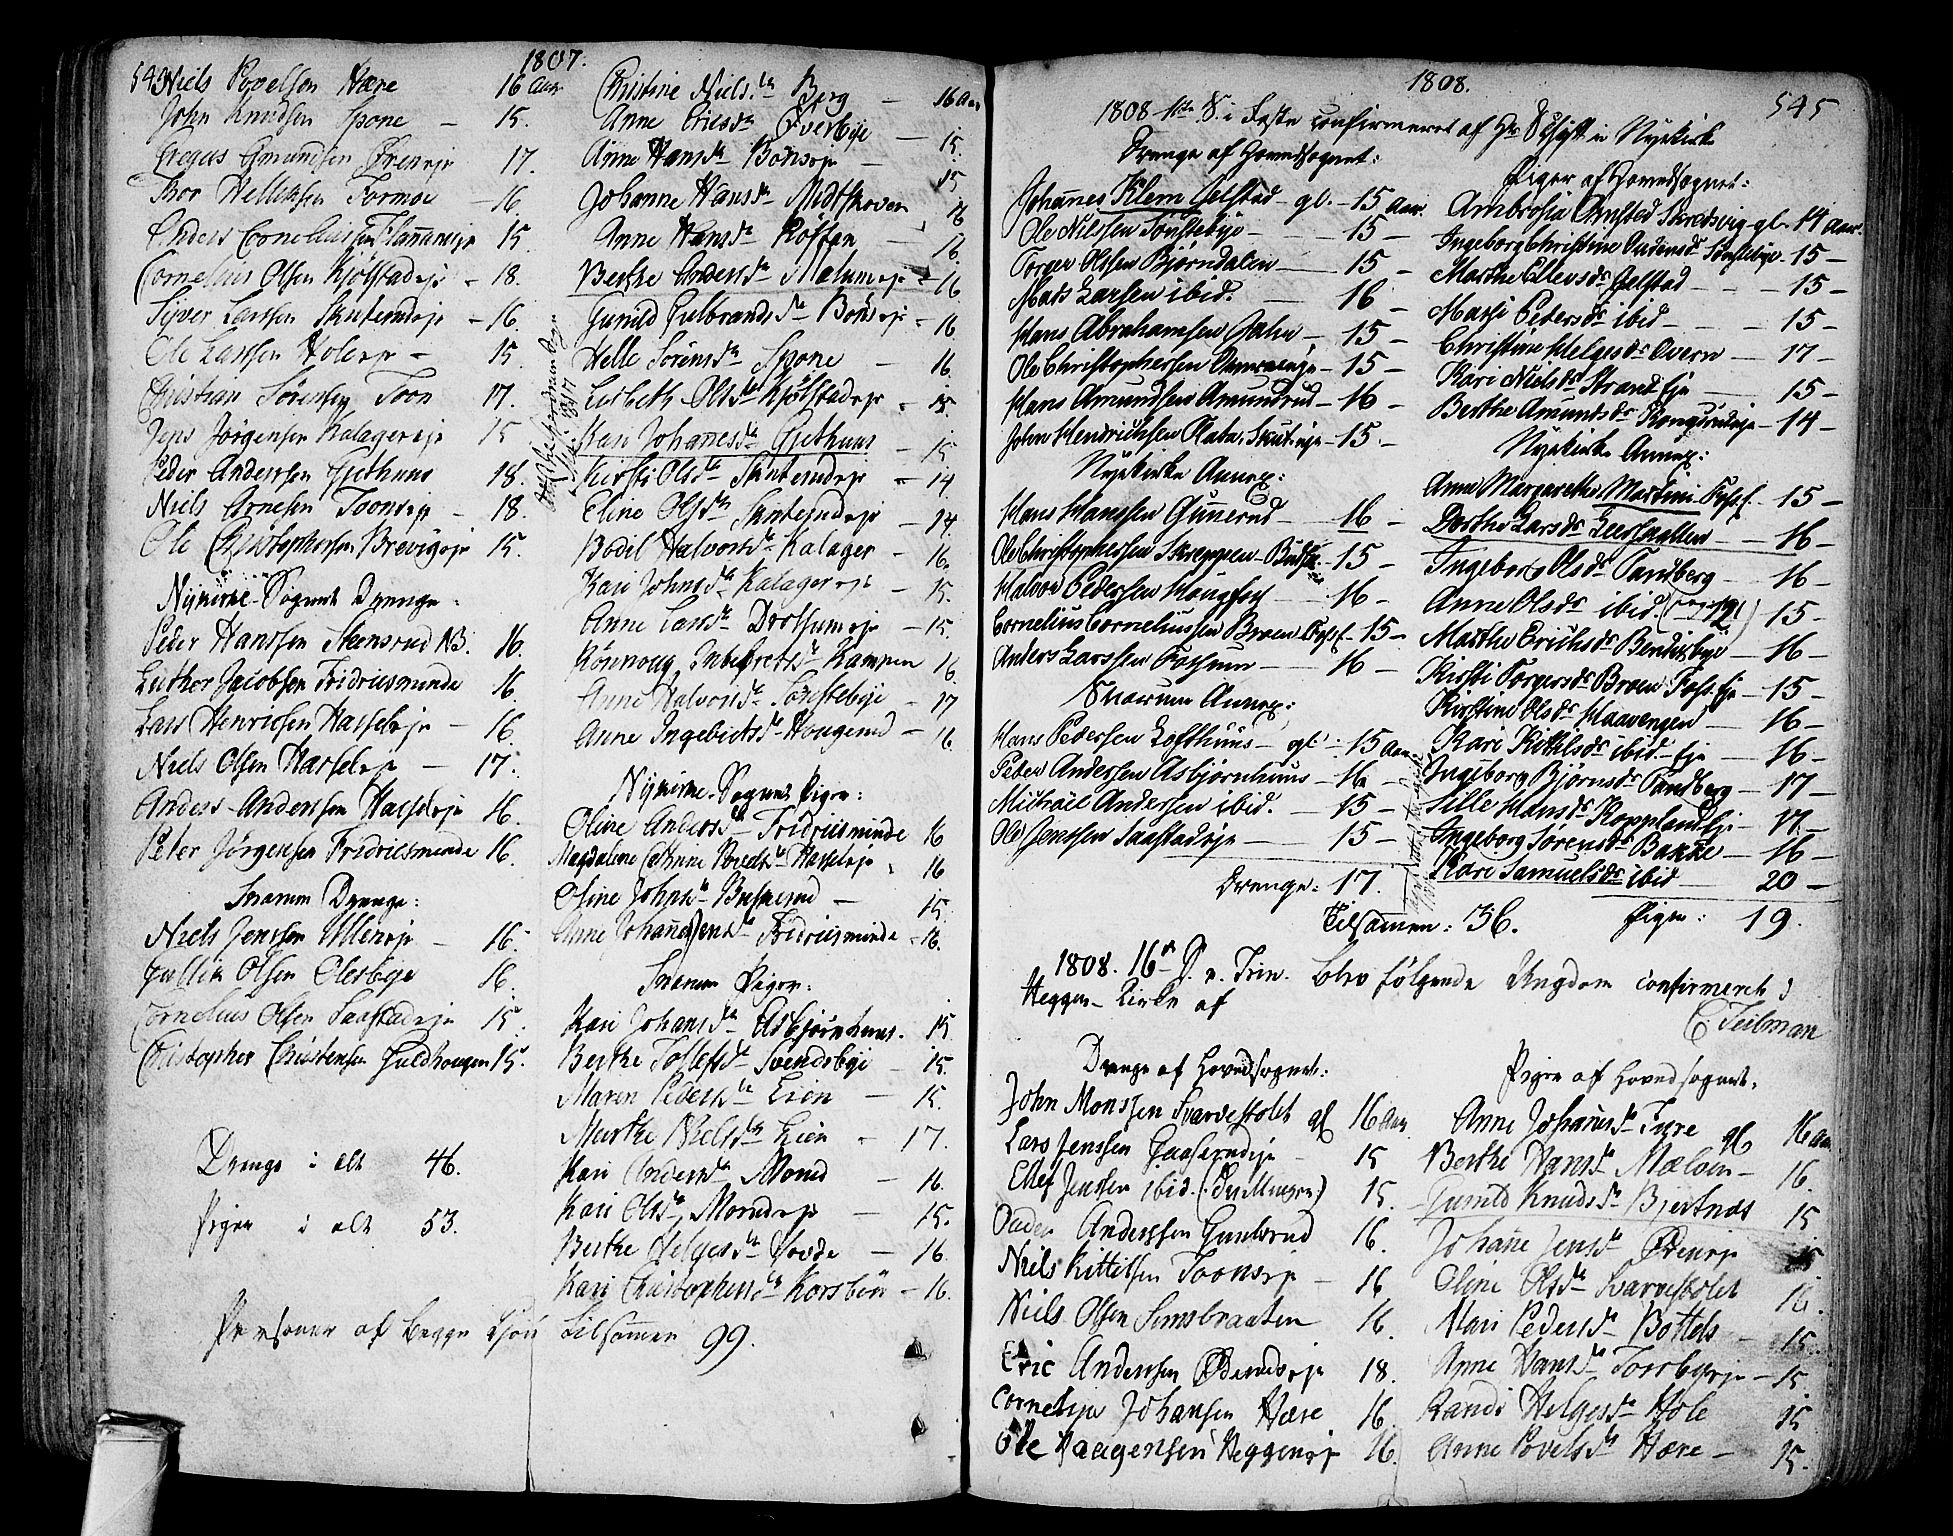 1807.
543
Niels Povelsen Hære 16 Aar
John Knudsen Spone - 15.
Gregers Gmundsen Øreneje 17.
Thor Hellechsen Formoe - 16.
Anders Corneliussen Flannumeje 15.
Cornelius Olsen Kjølstadeje - 18.
Syver Larssen Skuterudeje - 16.
Ole Larssen Holeeje - 15.
Christian Sørensen Toon 17.
Jens Jørgensen Kalagereje 15
Peder Anderssen Gjethuus 18.
Niels Arnesen Toonseje - 18.
Ole Christophersen Brevigeje 15.
Nykirke-Sognets Drenge:
Peder Hanssen Skensrud NB. 16.
Luther Jacobsen Fridricsminde 16.
Lars Henricsen Hasseleje - 16.
Niels Olsen Hasseleje - 17.
Anders Anderssen Hasseleje 16.
Peter Jørgensen Fridricsminde 16.
Snarum Drenge:
Niels Jenssen Ulleneje - 16.
Gullik Olsen Olesbye 16.
Cornelius Olsen Saastadeje 15.
Christopher Christensen Guldhaugen 15.
Drenge i alt 46.
Piger i alt 53.
Personer af begge Kjøn tilsamen 99.
Christine Niels.dr Berg - 16 Aar
Anne Ericsdr Øverbye - 15.
Anne Hansdr Bønseje - 15
Johanne Hansdr Midtskoven 16
Anne Hansdr Røssen - 16.
Berthe Andersdr Mælumeje - 16
Gunild Gulbrandsdr Bønseje - 16
Helle Sørensdr Spone - 16
Lisbeth Olsdr Kjølstadeje - 15
Kari Johanesdr Gjethuus - 15
Kirsti Olsdr Skuterudeje - 14
Eline Olsdr Skuterudeje - 14.
Bodil Halvorsdr Kalager - 16.
Kari Johnsdr Kalagereje 15.
Anne Larsdr Drolsumeje - 15.
Rønnoug Ingebretsdr Kampen 16.
Anne Halvorsdr Sønstebye - 17
Anne Ingebretsdr Hougerud - 16.
Nykirke-Sognets Piger:
Oline Andersdr Fridricsminde 16
Magdalene Cathrine Povelsdr Hasseleje - 16
Oline Johnsdr Buskerud - 15.
Anne Johanne Jensdr Fridricsminde - 16.
Snarum Piger:
Kari Johansdr Asbjørnhuus. 15
Berthe Tollefsdr Svendsbye 15.
Maren Pedersdr Lien - 15.
Marthe Nielsdr Lien - 17.
Kari Andersdr Morud - 16.
Kari Olsdr Morudeje - 15.
Berthe Helgesdr Hovde - 16.
Kari Christophersdr Korsbøn - 16.
1808. 545
1808 1ste S. i Faste confirmeret af Hr Schiøtt in Nyekirke
Drenge af Hovedsognet:
Johannes Klem Gelstad - gl. - 15 Aar.
Ole Nilssen Sønstebye - 15 -
Torger Olssen Bjørndalen - 15 -
Mats Larsen ibid. - 16 -
Hans Abrahamsen Dahn - 15 -
Ole Christophersen - 15 -
Hans Amundsen Amundrud - 16 -
John Hendrichsen Plata, Skut.eje - 15 -
Nyekirke Annex:
Hans Hanssen Gunerud - 16 -
Ole Christophersen Skreppen - 15 -
Halvor Pedersen Hougfos - 16 -
Cornelius Corneliussen Broen Fossf. - 15 -
Anders Larssen Fossum - 16 -
Snarum Annex:
Hans Pedersen Lofthuus - gl: 15 Aar
Peder Andersen Asbjørnhuus - 16 -
Michael Andersen ibid. - 15 -
Ole Jenssen Saastadeje - 15 -
Drenge: 17.
Piger af Hovedsognet:
Ambrosia Amsted Skredsvig - gl. - 14 Aar.
Ingeborg Christine Andersdr Sønstebye - 15 -
Marthe Ellevsdr Gelstad - 15 -
Marthe Pedersdr ibid - 15 -
Christine Helgesdr Overn - 17 -
Kari Nielsdr Strand Eje - 15 -
Berthe Amundsdr Kongsrudeje - 14 -
Nyekirke Annex:
Anne Margarethe Martini Fossf. - 15 -
Dorthe Larsdr Leershallen - 16 -
Ingeborg Olsdr Sandberg - 16 -
Anne Olsdr ibid 15 -
Marthe Erichsdr Bentsebye - 16 -
Kirsti Torgersdr Broen Foss. Eje - 15 -
Kirstine Olsdr Haavengen - 16 -
Kari Kittilsdr ibid - Eje - 16 -
Ingeborg Bjørnsdr Sandberg - 17 -
Sille Hansdr Kopland Eje - 17 -
Ingeborg Sørensdr Bakke - 16 -
Kari Samuelsdr ibid 20 -
Piger: 19.
Tilsamen: 36.
1808. 16de S. e. Trin. blev følgende Ungdom confirmeret i
Heggen Kirke af
C Teilman
Drenge af Hovedsognet:
John Monssen Svarvestolet gl 16 Aar.
Lars Jenssen Gaaserudeje - 15
Ellef Jenssen ibid. 15.
Peder Anderssen Gunlerud 16.
Niels Kittilsen Toonseje - 16
Niels Olsen Semsbraaten 16.
Eric Andersen Ørendseje 18.
Cornelius Johansen Hære 16.
Ole Paagensen Heggeneje 16.
Piger af Hovedsognet.
Anne Johanisdr Fure gl 16 Aar
Berthe Hansdr Mælum - 16
Gunild Knudsdr Bjertnæs 15
Johane Jensdr Øreneje 15
Eline Olsdr Svarvestolet 16.
Mari Pedersdr Bottels - 15.
Anne Hansdr Torsbyeje - 15.
Randi Helgesdr Hole 15
Anne Povelsdr Hære - 15.